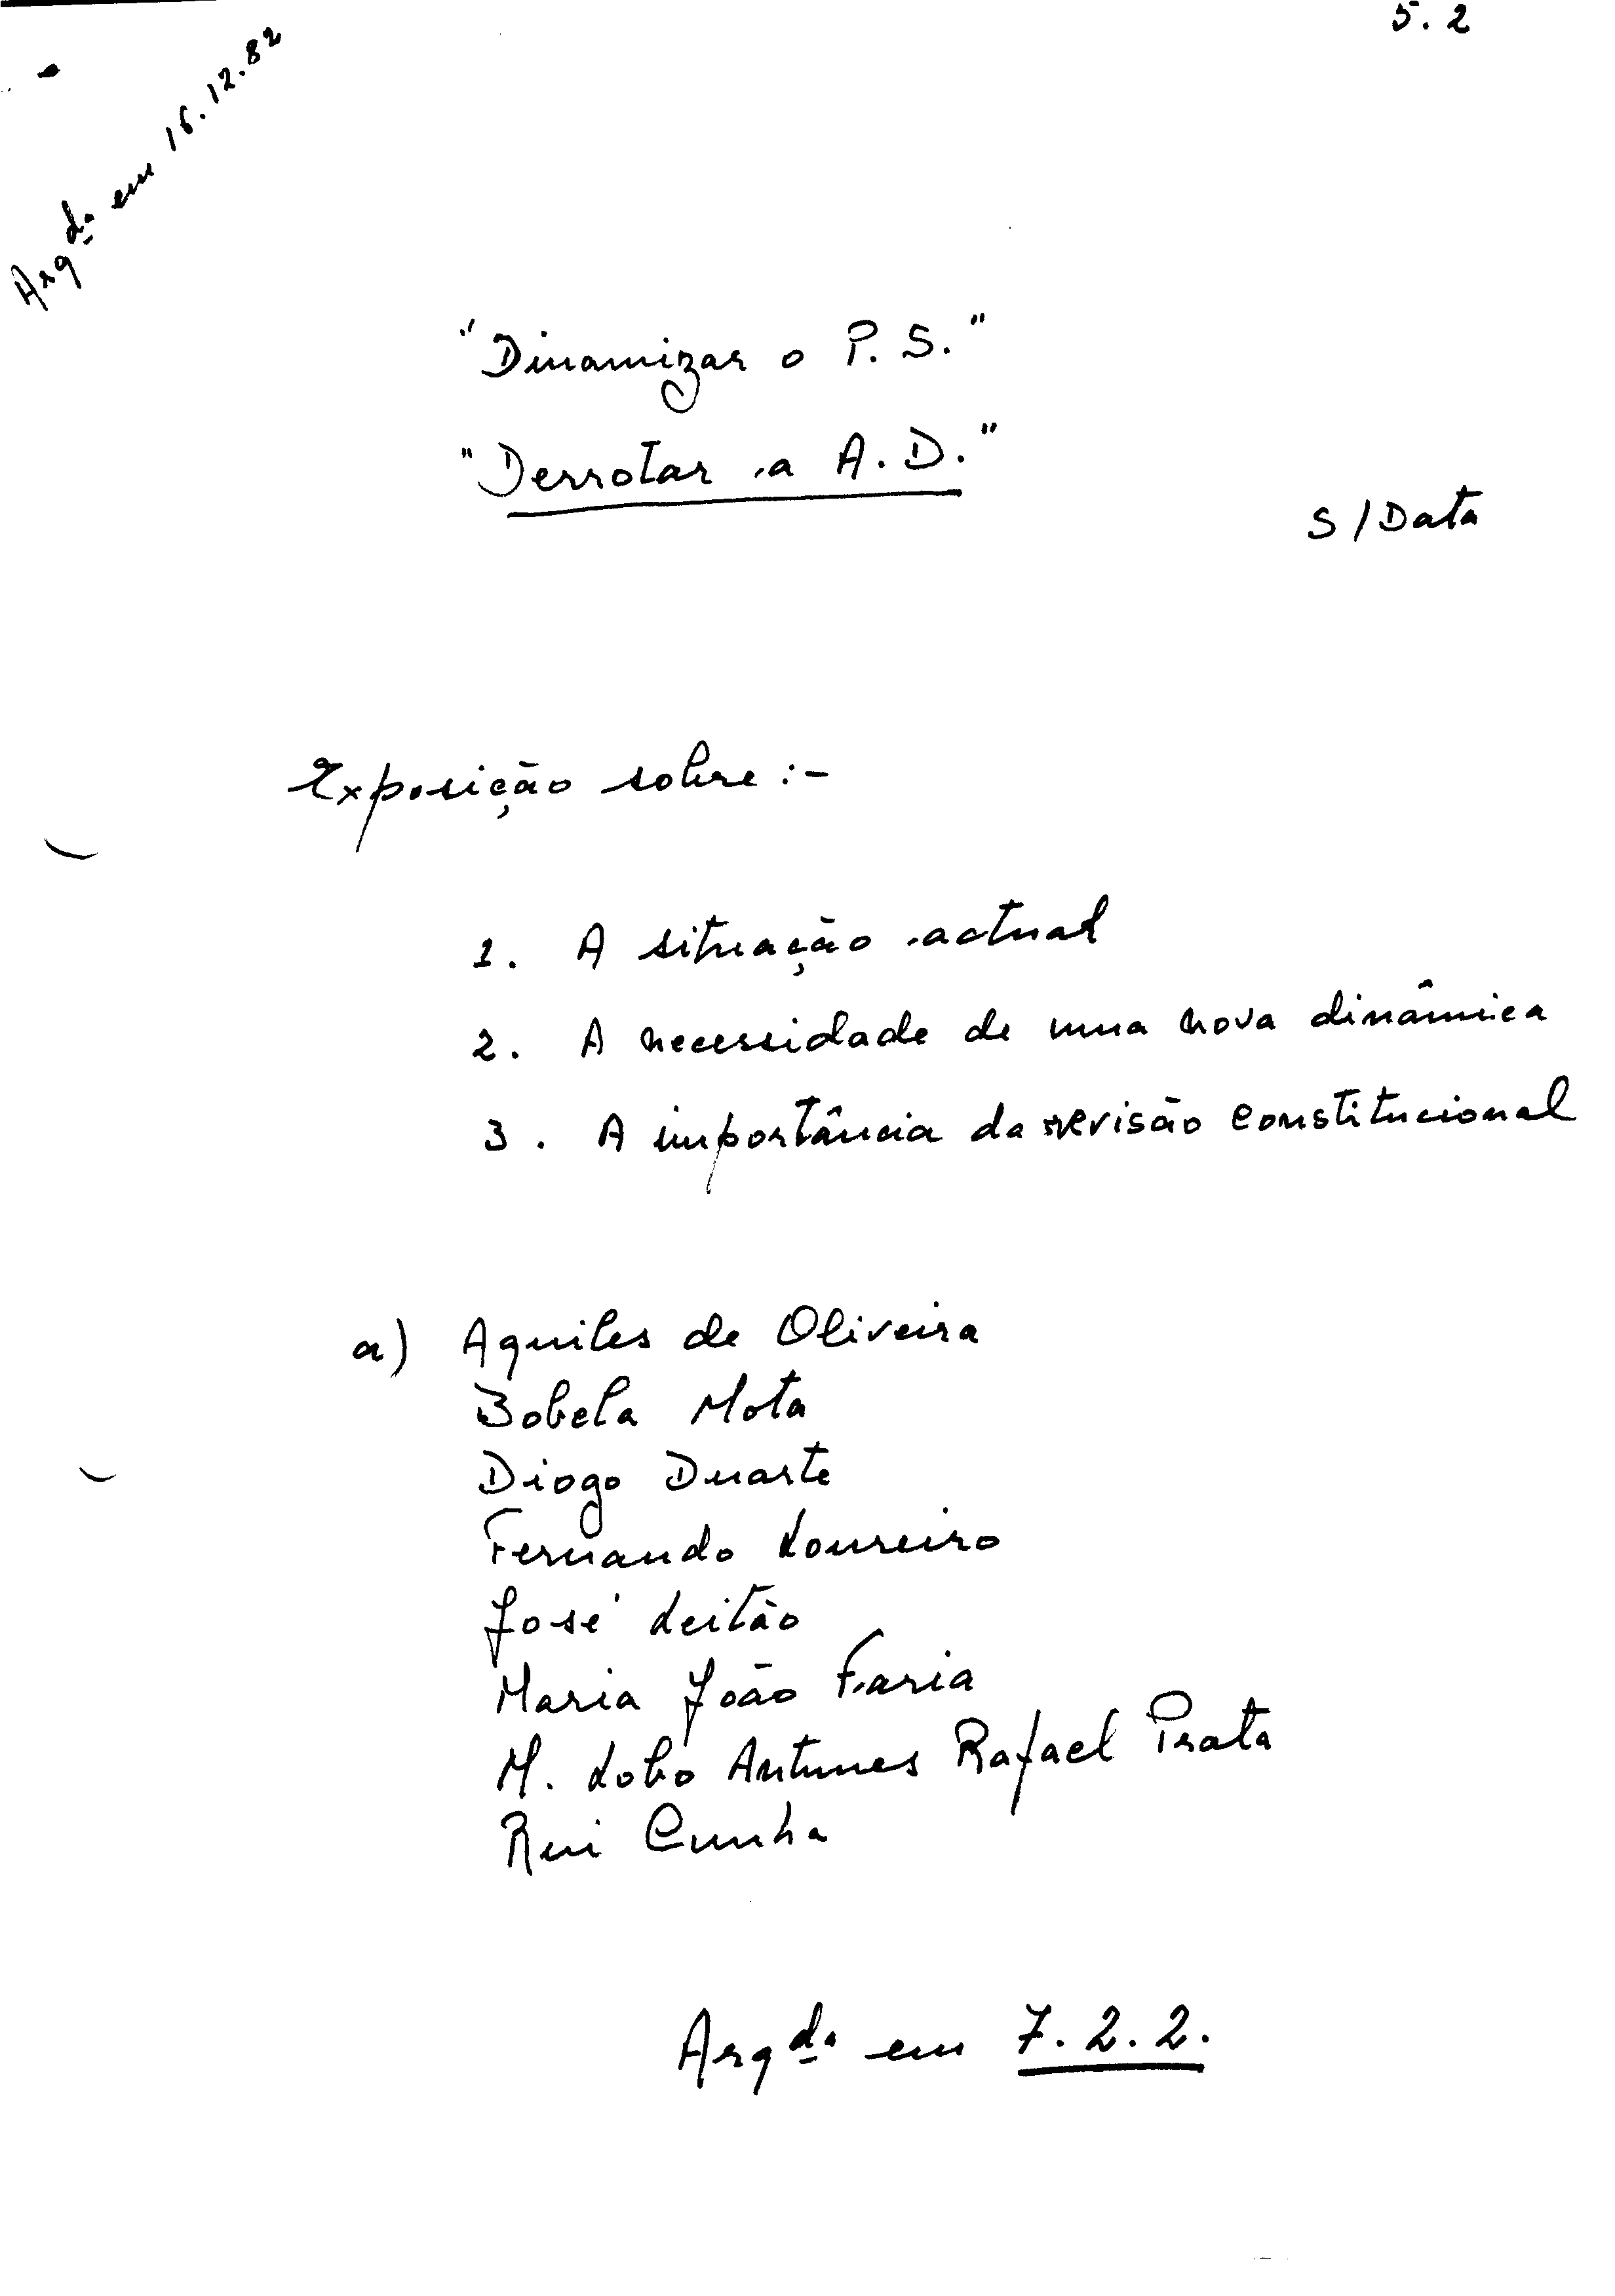 5.2
Arqda em 16.12.82
"Dinamizar o P.S."
"Derrotar a A.D."
S/Data
Exposição sobre:-
1. A situação actual
2. A necessidade de uma nova dinâmica
3. A importância da revisão constitucional
a) Aquiles de Oliveira
Bobela Mota
Diogo Duarte
Fernando Loureiro
José Leitão
Maria João Faria
M. Lobo Antunes Rafael Prata
Rui Cunha
Arqda em 7.2.2.